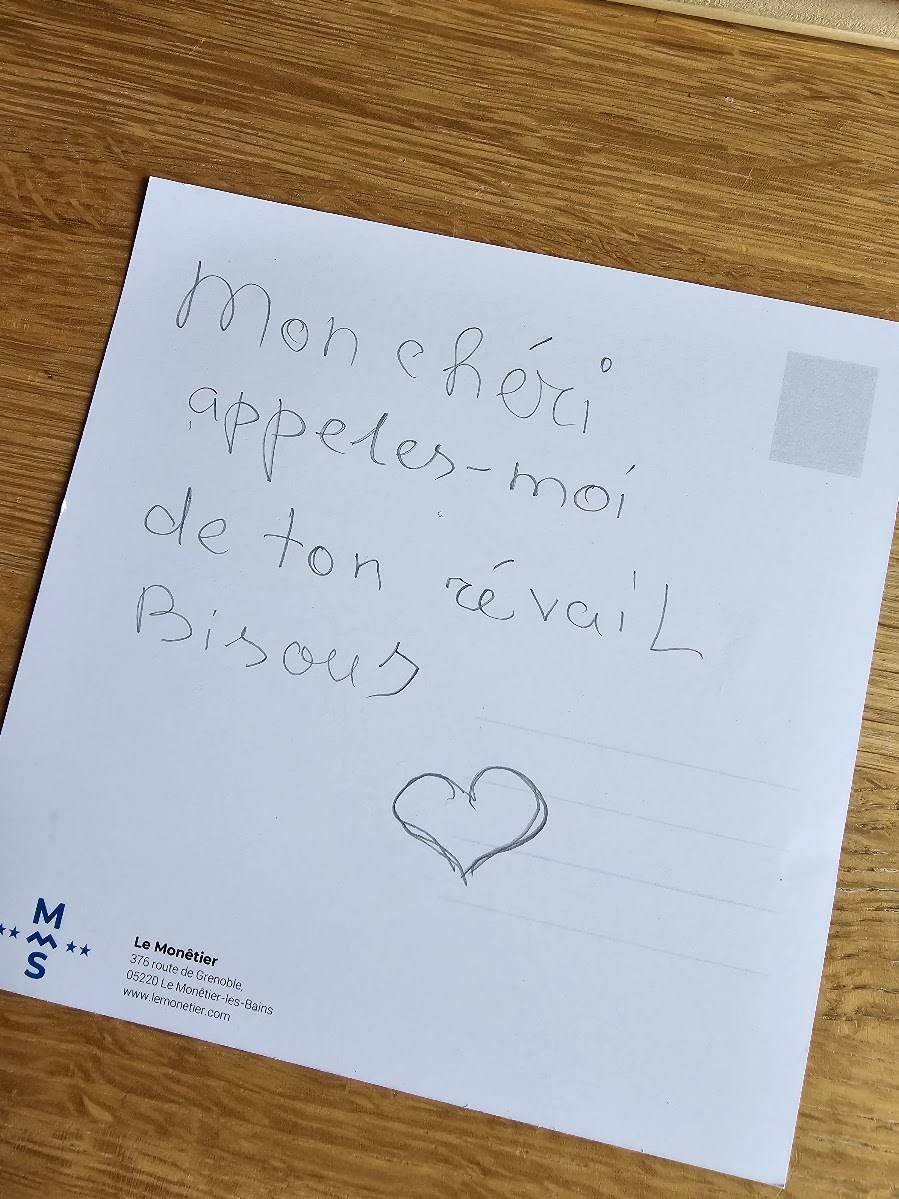 Mon chéri
appeles-moi
de ton révail
Bisous
M
S
Le Monêtier
376 route de Grenoble,
05220 Le Monêtier-les-Bains
www.lemonetier.com